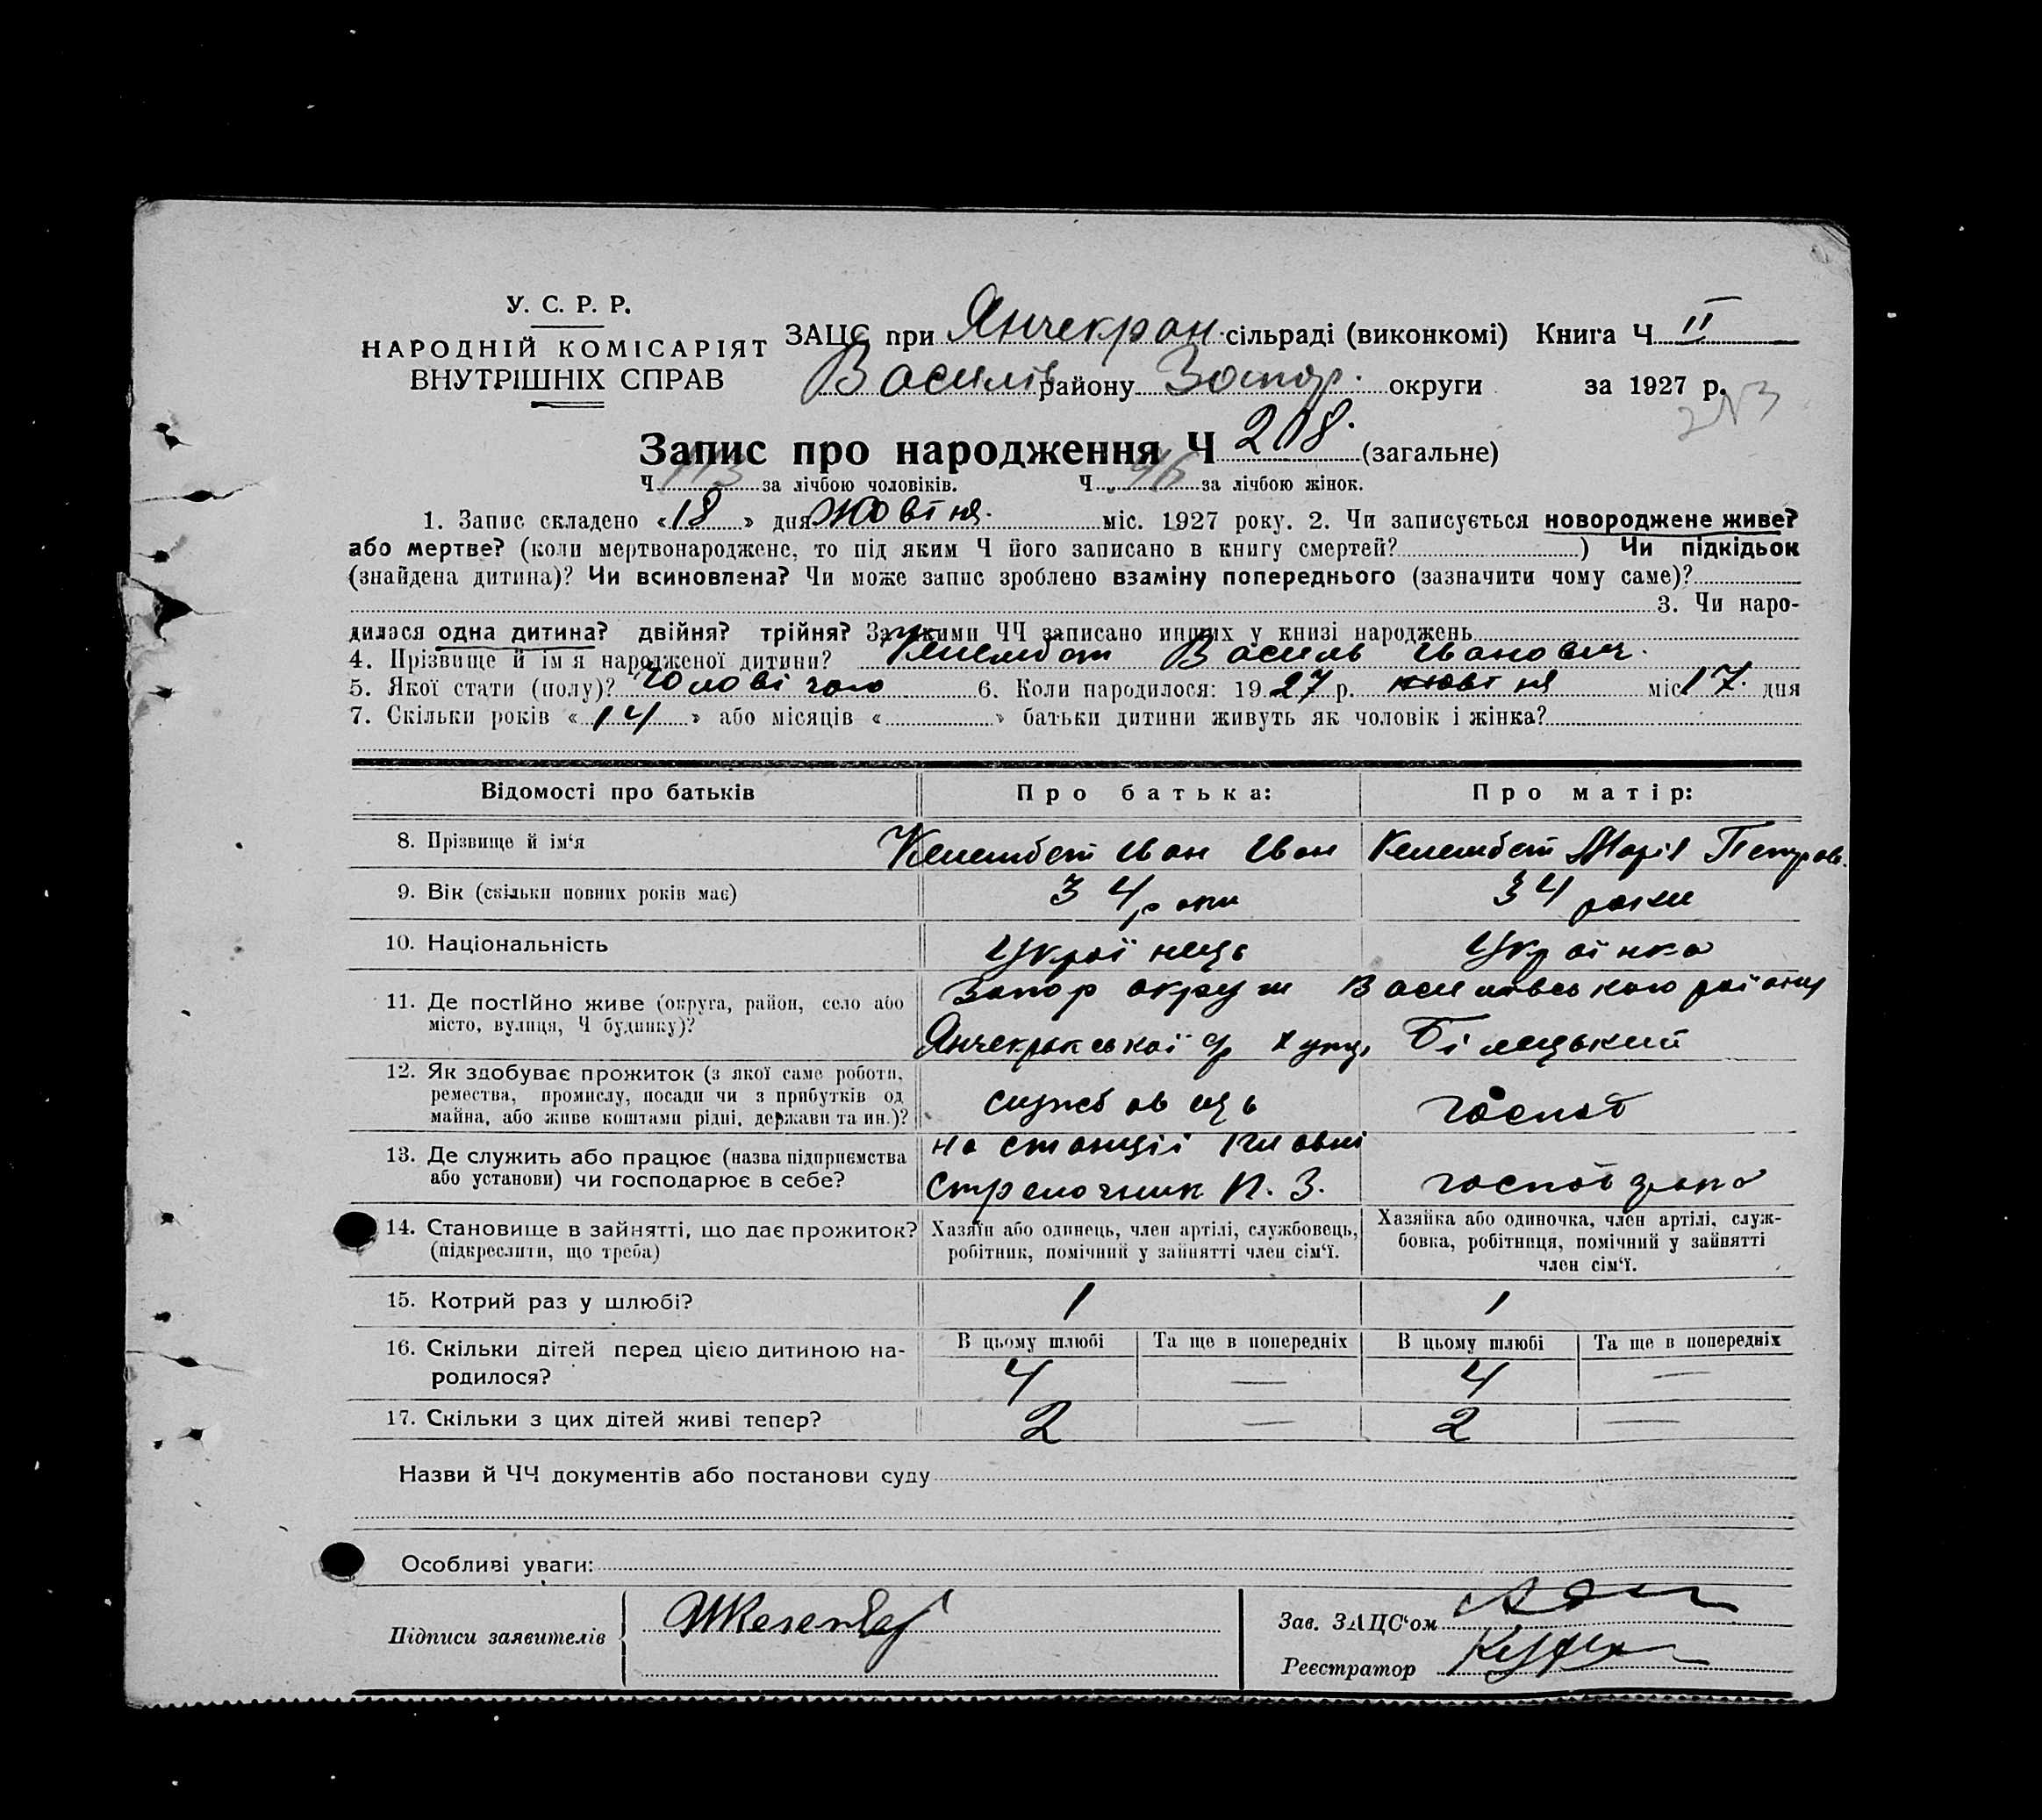 У. С. Р. Р.
НАРОДНІЙ КОМІСАРІЯТ
ВНУТРІШНІХ СПРАВ
ЗАЦС при Янчекрак сільраді (виконкомі) Книга Ч II
Василів району Запор. округи за 1927 р.
Запис про народження Ч 208. (загальне)
Ч 113 за лічбою чоловіків. Ч за лічбою жінок.
1. Запис складено «18» дня Жовтня міс. 1927 року. 2. Чи записується новороджене живе?
або мертве? (коли мертвонароджене, то під яким Ч його записано в книгу смертей? ) Чи підкідьок
(знайдена дитина)? Чи всиновлена? Чи може запис зроблено взаміну попереднього (зазначити чому саме)?
3. Чи наро-
дилася одна дитина? двійня? трійня? За якими ЧЧ записано инших у книзі народжень
4. Прізвище й ім'я народженої дитини? Келембет Василь Іванович.
5. Якої стати (полу)? Чоловічого 6. Коли народилося: 1927 р. жовтня міс 17. дня
7. Скільки років «14» або місяців « » батьки дитини живуть як чоловік і жінка?
Відомості про батьків Про батька: Про матір:
8. Прізвище й ім‘я Келембет Іван Іван Келембет Марія Петров.
9. Вік (скільки повних років має) 34 роки 34 роки
10. Національність Українець Українка
11. Де постІйно живе (округа, район, село або
місто, вулиця, Ч будинку)?
Запор округи Василівського району
Янчекракської с/р хут. Білецький
12. Як здобуває прожиток (з якої саме роботи,
ремества, промислу, посади чи з прибутків од
майна, або живе коштами рідні, держави та ин.)?
службовець господ
13. Де служить або працює (назва підприємства
або установи) чи господарює в себе?
на станції
Стрелочник П. З.
14. Становище в зайнятті, що дає прожиток?
(підкреслити, що треба)
Хазяїн або одинець, член артілі, службовець,
робітник, помічний у зайнятті член сім‘ї.
Хазяйка або одиночка, член артілі, служ-
бовка, робітниця, помічний у зайнятті
член сім‘ї.
15. Котрий раз у шлюбі? 1 1
16. Скільки дітей перед цією дитиною на-
родилося?
В цьому шлюбі Та ще в попередніх В цьому шлюбі Та ще в попередніх
4 — 4 —
17. Скільки з цих дітей живі тепер? 2 — 2 —
Назви й ЧЧ документів або постанови суду
Особливі уваги:
Підписи заявителів
Зав. ЗАЦС‘ом
Реєстратор